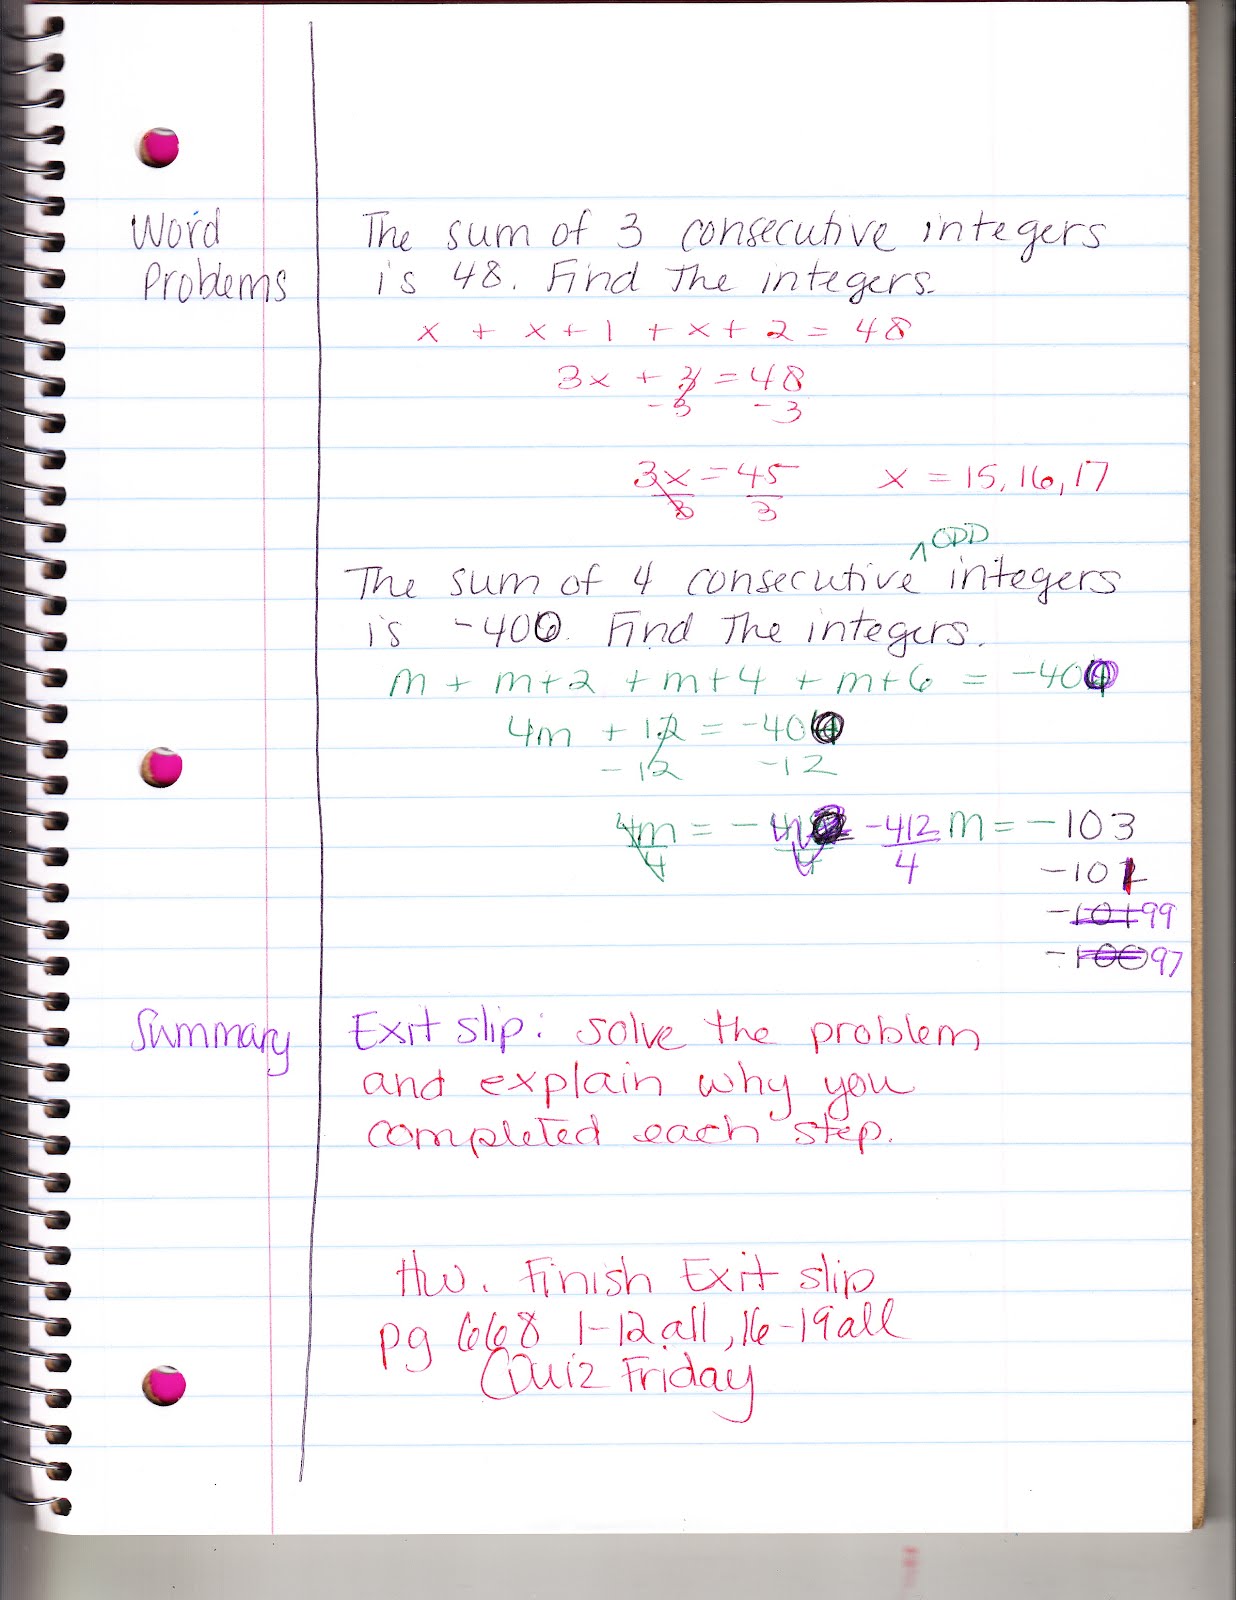 Word
Problems
The sum of 3 consecutive integers
is 48. Find The integers.
x + x+1 + x+2 = 48
3x + 3 = 48
-3 -3
3x = 45
3 3
x = 15, 16, 17
ODD
The sum of 4 consecutive ^ integers
is -400. Find The integers.
m + m+2 + m+4 + m+6 = -400
4m + 12 = -400
-12 -12
4m = - -412 m = -103
4 4
-101
-101 99
-100 97
Summary
Exit slip: solve the problem
and explain why you
completed each step.
Hw. Finish Exit slip
pg 668 1-12 all, 16-19 all
Quiz Friday